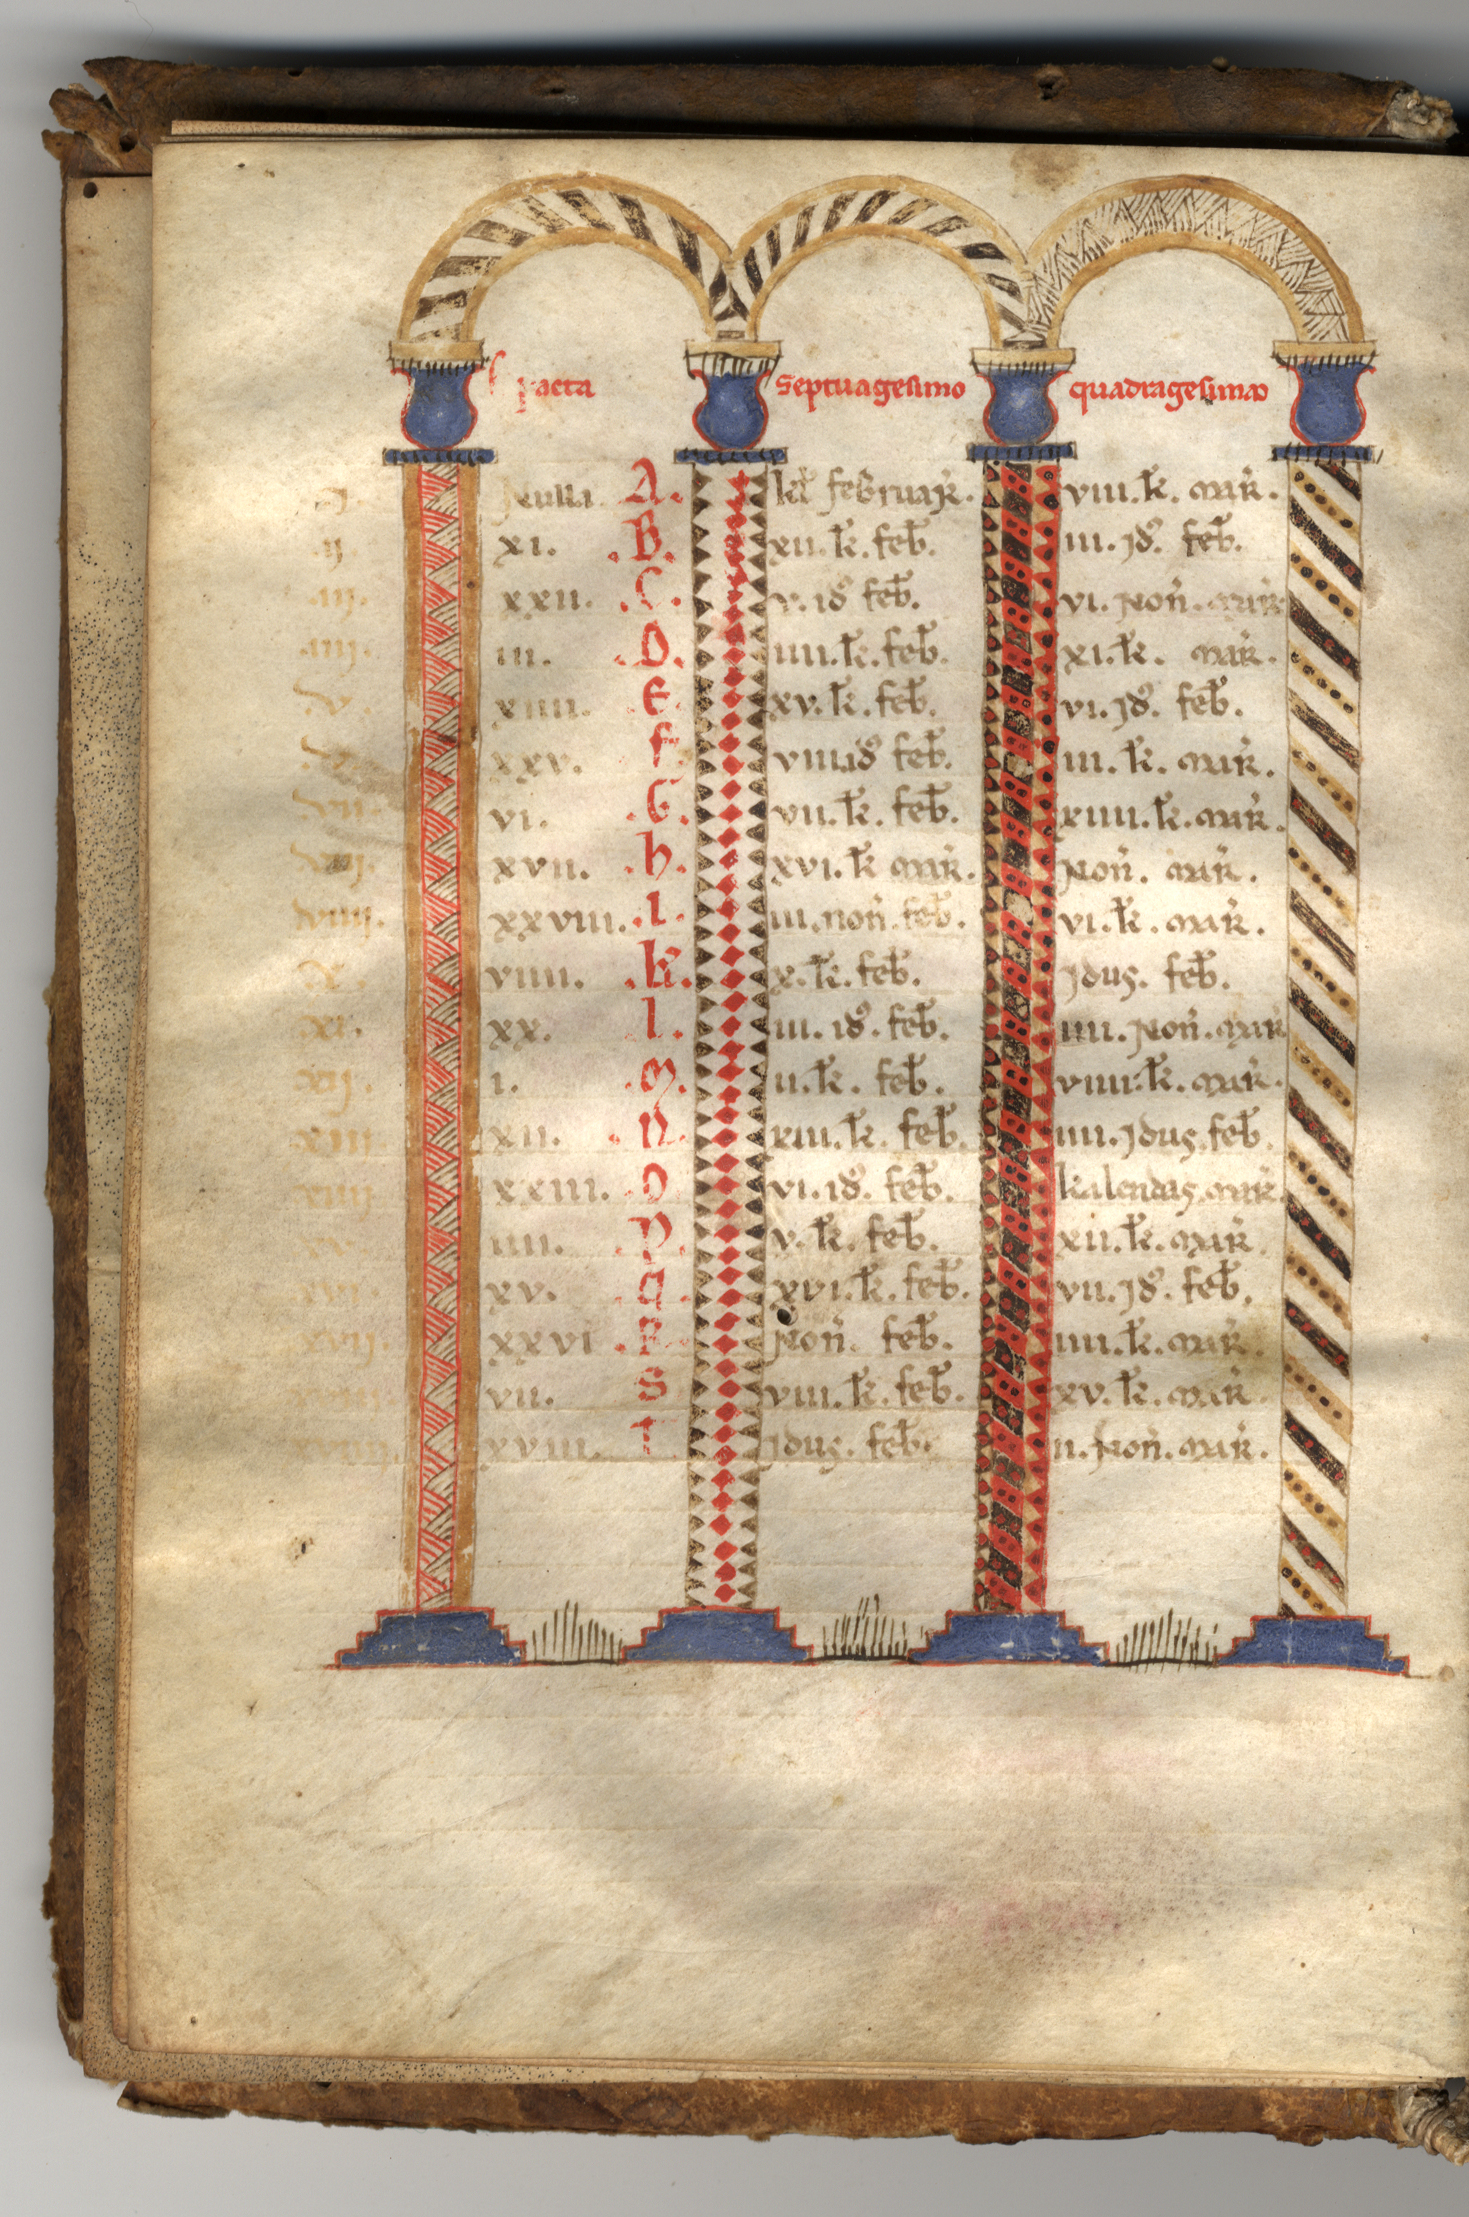 pacta Septuagesimo quadragesima
.ij. Nulla. A. kł februar̄. viii.k̄. mar̄.
.ij. xi. .B. xii.k̄.feb̄. iii.id̄. feb̄.
.iij. xxii. .C. v.id̄ feb̄. vi.Non̄.mar̄
.iiij. iii. .D. iiii.k̄.feb̄. xi.k̄. mar̄.
v. xiiii. .E. xv.k̄.feb̄. vi.id̄. feb̄.
xxv. f viii.id̄ feb̄. iii.k̄. mar̄.
vii. vi. .G. vii.k̄.feb̄. xiiii.k̄.mar̄.
xvii. .h. xvi.k̄ mar̄. Non̄. mar̄.
viiii. xxviii. .I. iii.non̄.feb̄. vi.k̄. mar̄.
x. viiii. .k. x.k̄.feb̄. idus. feb̄.
xi. xx. l. iii.id̄.feb̄. iiii.Non̄.mar̄
xij. i. .M. ii.k̄. feb̄. viiii.k̄.mar̄.
xiij xii. .N. xiii.k̄. feb̄. iiii.idus.feb̄.
xiiij xxiii. .O. vi.id̄. feb̄. kalendas.mar̄.
xv iiii. .P. v.k̄. feb̄. xii.k̄.mar̄.
xv. .q. xvi.k̄.feb̄. vii.id̄. feb̄.
xvij. xxvi .R. Non̄. feb̄. iiii.k̄.mar̄.
vii. S viii.k̄.feb̄. xv.k̄.mar̄.
xviii. T idus. feb̄. ii.Non̄.mar̄.